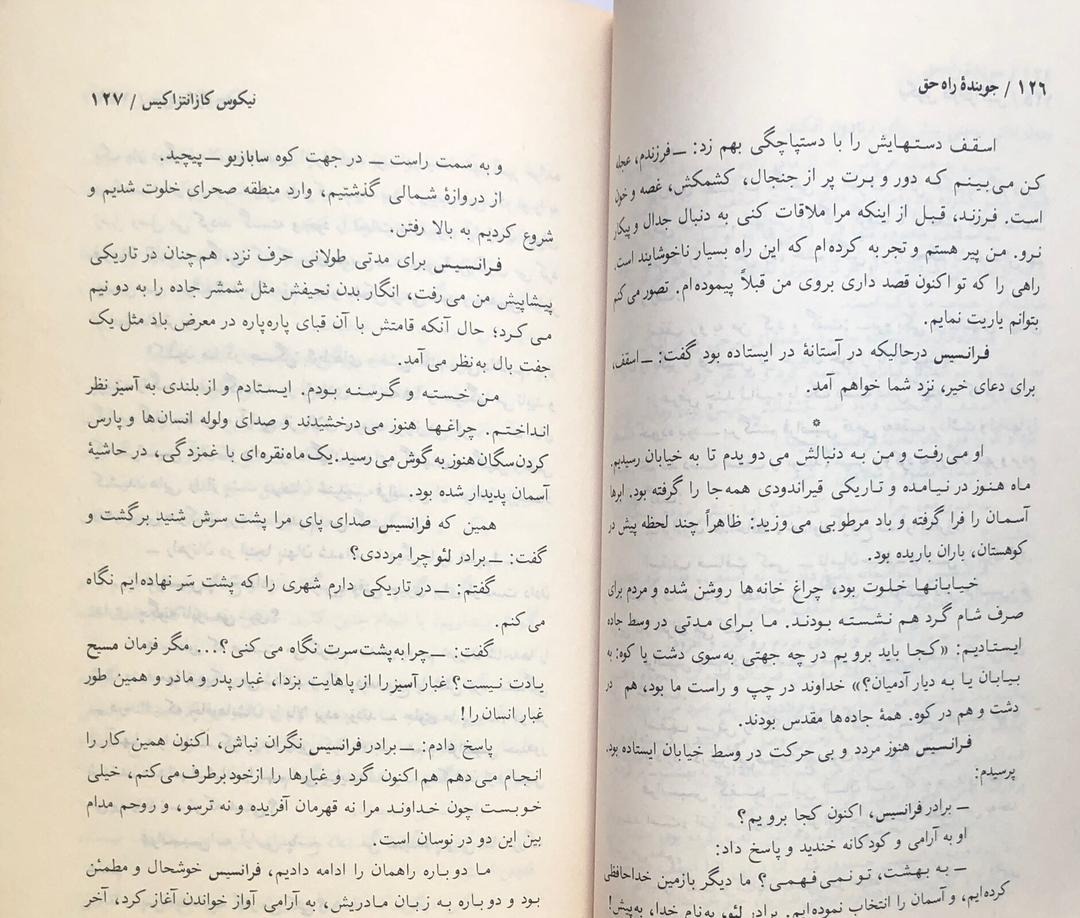 ۱۲۶ / جویندهٔ راه حق
اسقف دستهایش را با دستپاچگی بهم زد: ــ فرزندم، عجله
کن می‌بینم که دور و برت پر از جنجال، کشمکش، غصه و خون
است. فرزند، قبل از اینکه مرا ملاقات کنی به دنبال جدال و پیکار
نرو. من پیر هستم و تجربه کرده‌ام که این راه بسیار ناخوشایند است.
راهی را که تو اکنون قصد داری بروی من قبلاً پیموده‌ام. تصور می‌کنم
بتوانم یاریت نمایم.
فرانسیس درحالیکه در آستانهٔ در ایستاده بود گفت: ــ اسقف،
برای دعای خیر، نزد شما خواهم آمد.
*
او می‌رفت و من به دنبالش می‌دویدم تا به خیابان رسیدیم.
ماه هنوز در نیامده و تاریکی قیراندودی همه‌جا را گرفته بود. ابرها
آسمان را فرا گرفته و باد مرطوبی می‌وزید: ظاهراً چند لحظه پیش در
کوهستان، باران باریده بود.
خیابانها خلوت بود، چراغ خانه‌ها روشن شده و مردم برای
صرف شام گرد هم نشسته بودند. ما برای مدتی در وسط جاده
ایستادیم: «کجا باید برویم در چه جهتی به‌سوی دشت یا کوه: به
بیابان یا به دیار آدمیان؟» خداوند در چپ و راست ما بود، هم در
دشت و هم در کوه. همهٔ جاده‌ها مقدس بودند.
فرانسیس هنوز مردد و بی‌حرکت در وسط خیابان ایستاده بود.
پرسیدم:
ــ برادر فرانسیس، اکنون کجا برویم؟
او به آرامی و کودکانه خندید و پاسخ داد:
ــ به بهشت، تو نمی‌فهمی؟ ما دیگر بازمین خداحافظی
کرده‌ایم، و آسمان را انتخاب نموده‌ایم. برادر لئو، به‌نام خدا، به‌پیش!
نیکوس کازانتزاکیس / ۱۲۷
و به سمت راست ــ در جهت کوه سابازیو ــ پیچید.
از دروازهٔ شمالی گذشتیم، وارد منطقه صحرای خلوت شدیم و
شروع کردیم به بالا رفتن.
فرانسیس برای مدتی طولانی حرف نزد. هم‌چنان در تاریکی
پیشاپیش من می‌رفت، انگار بدن نحیفش مثل شمشر جاده را به دو نیم
می‌کرد؛ حال آنکه قامتش با آن قبای پاره‌پاره در معرض باد مثل یک
جفت بال به‌نظر می‌آمد.
من خسته و گرسنه بودم. ایستادم و از بلندی به آسیز نظر
انداختم. چراغها هنوز می‌درخشیدند و صدای ولوله انسان‌ها و پارس
کردن سگان هنوز به گوش می‌رسید. یک ماه نقره‌ای با غمزدگی، در حاشیهٔ
آسمان پدیدار شده بود.
همین که فرانسیس صدای پای مرا پشت سرش شنید برگشت و
گفت: ــ برادر لئو چرا مرددی؟
گفتم: ــ در تاریکی دارم شهری را که پشت سَر نهاده‌ایم نگاه
می‌کنم.
گفت: ــ چرا به پشت سرت نگاه می‌کنی؟... مگر فرمان مسیح
یادت نیست؟ غبار آسیز را از پاهایت بزدا، غبار پدر و مادر و همین طور
غبار انسان را!
پاسخ دادم: ــ برادر فرانسیس نگران نباش، اکنون همین کار را
انجام می‌دهم هم‌اکنون گرد و غبارها را ازخود برطرف می‌کنم، خیلی
خوبست چون خداوند مرا نه قهرمان آفریده و نه ترسو، و روحم مدام
بین این دو در نوسان است.
ما دوباره راهمان را ادامه دادیم، فرانسیس خوشحال و مطمئن
بود و دوباره به زبان مادریش، به آرامی آواز خواندن آغاز کرد، آخر